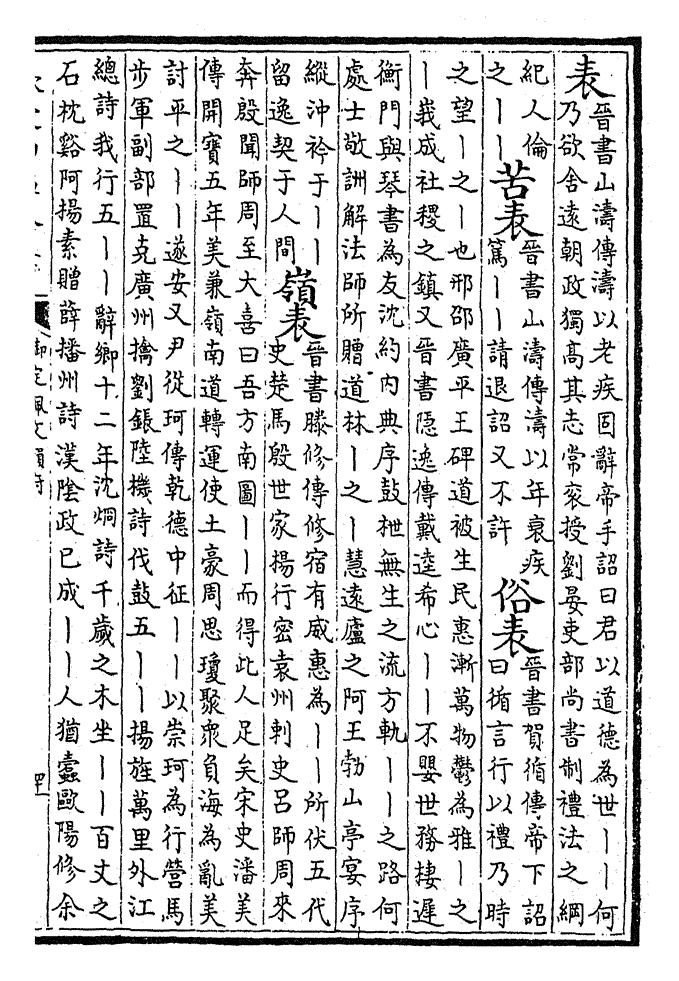 表
晉書山濤傳濤以老疾固辭帝手詔曰君以道德為世丨丨何
乃欲舍遠朝政獨高其志常衮授劉晏吏部尚書制禮法之綱
紀人倫
之丨丨
苦表
晉書山濤傳濤以年衰疾
篤丨丨請退詔又不許
俗表
晉書賀循傳帝下詔
曰循言行以禮乃時
之望丨之丨也邢邵廣平王碑道被生民惠漸萬物鬱為雅丨之
丨峩成社稷之鎮又晉書隐逸傳戴逵希心丨丨不嬰世務棲遲
衡門與琴書為友沈約内典序鼓枻無生之流方軌丨丨之路何
處士敬詶解法師所贈道林丨之丨慧遠廬之阿王勃山亭宴序
縱沖衿于丨丨
留逸契于人間
嶺表
晉書滕修傳修宿有威惠為丨丨所伏五代
史楚馬殷世家揚行密袁州刺史呂師周來
奔殷聞師周至大喜曰吾方南圖丨丨而得此人足矣宋史潘美
傳開寶五年美兼嶺南道轉運使土豪周思瓊聚衆負海為亂美
討平之丨丨遂安又尹從珂傳乾德中征丨丨以崇珂為行營馬
步軍副部罝克廣州擒劉鋹陸機詩伐鼓五丨丨揚旌萬里外江
總詩我行五丨丨辭鄉十二年沈烱詩千歲之木坐丨丨百丈之
石枕谿阿揚素贈薛播州詩漢陰政已成丨丨人猶蠹歐陽修余
御定佩文韻府